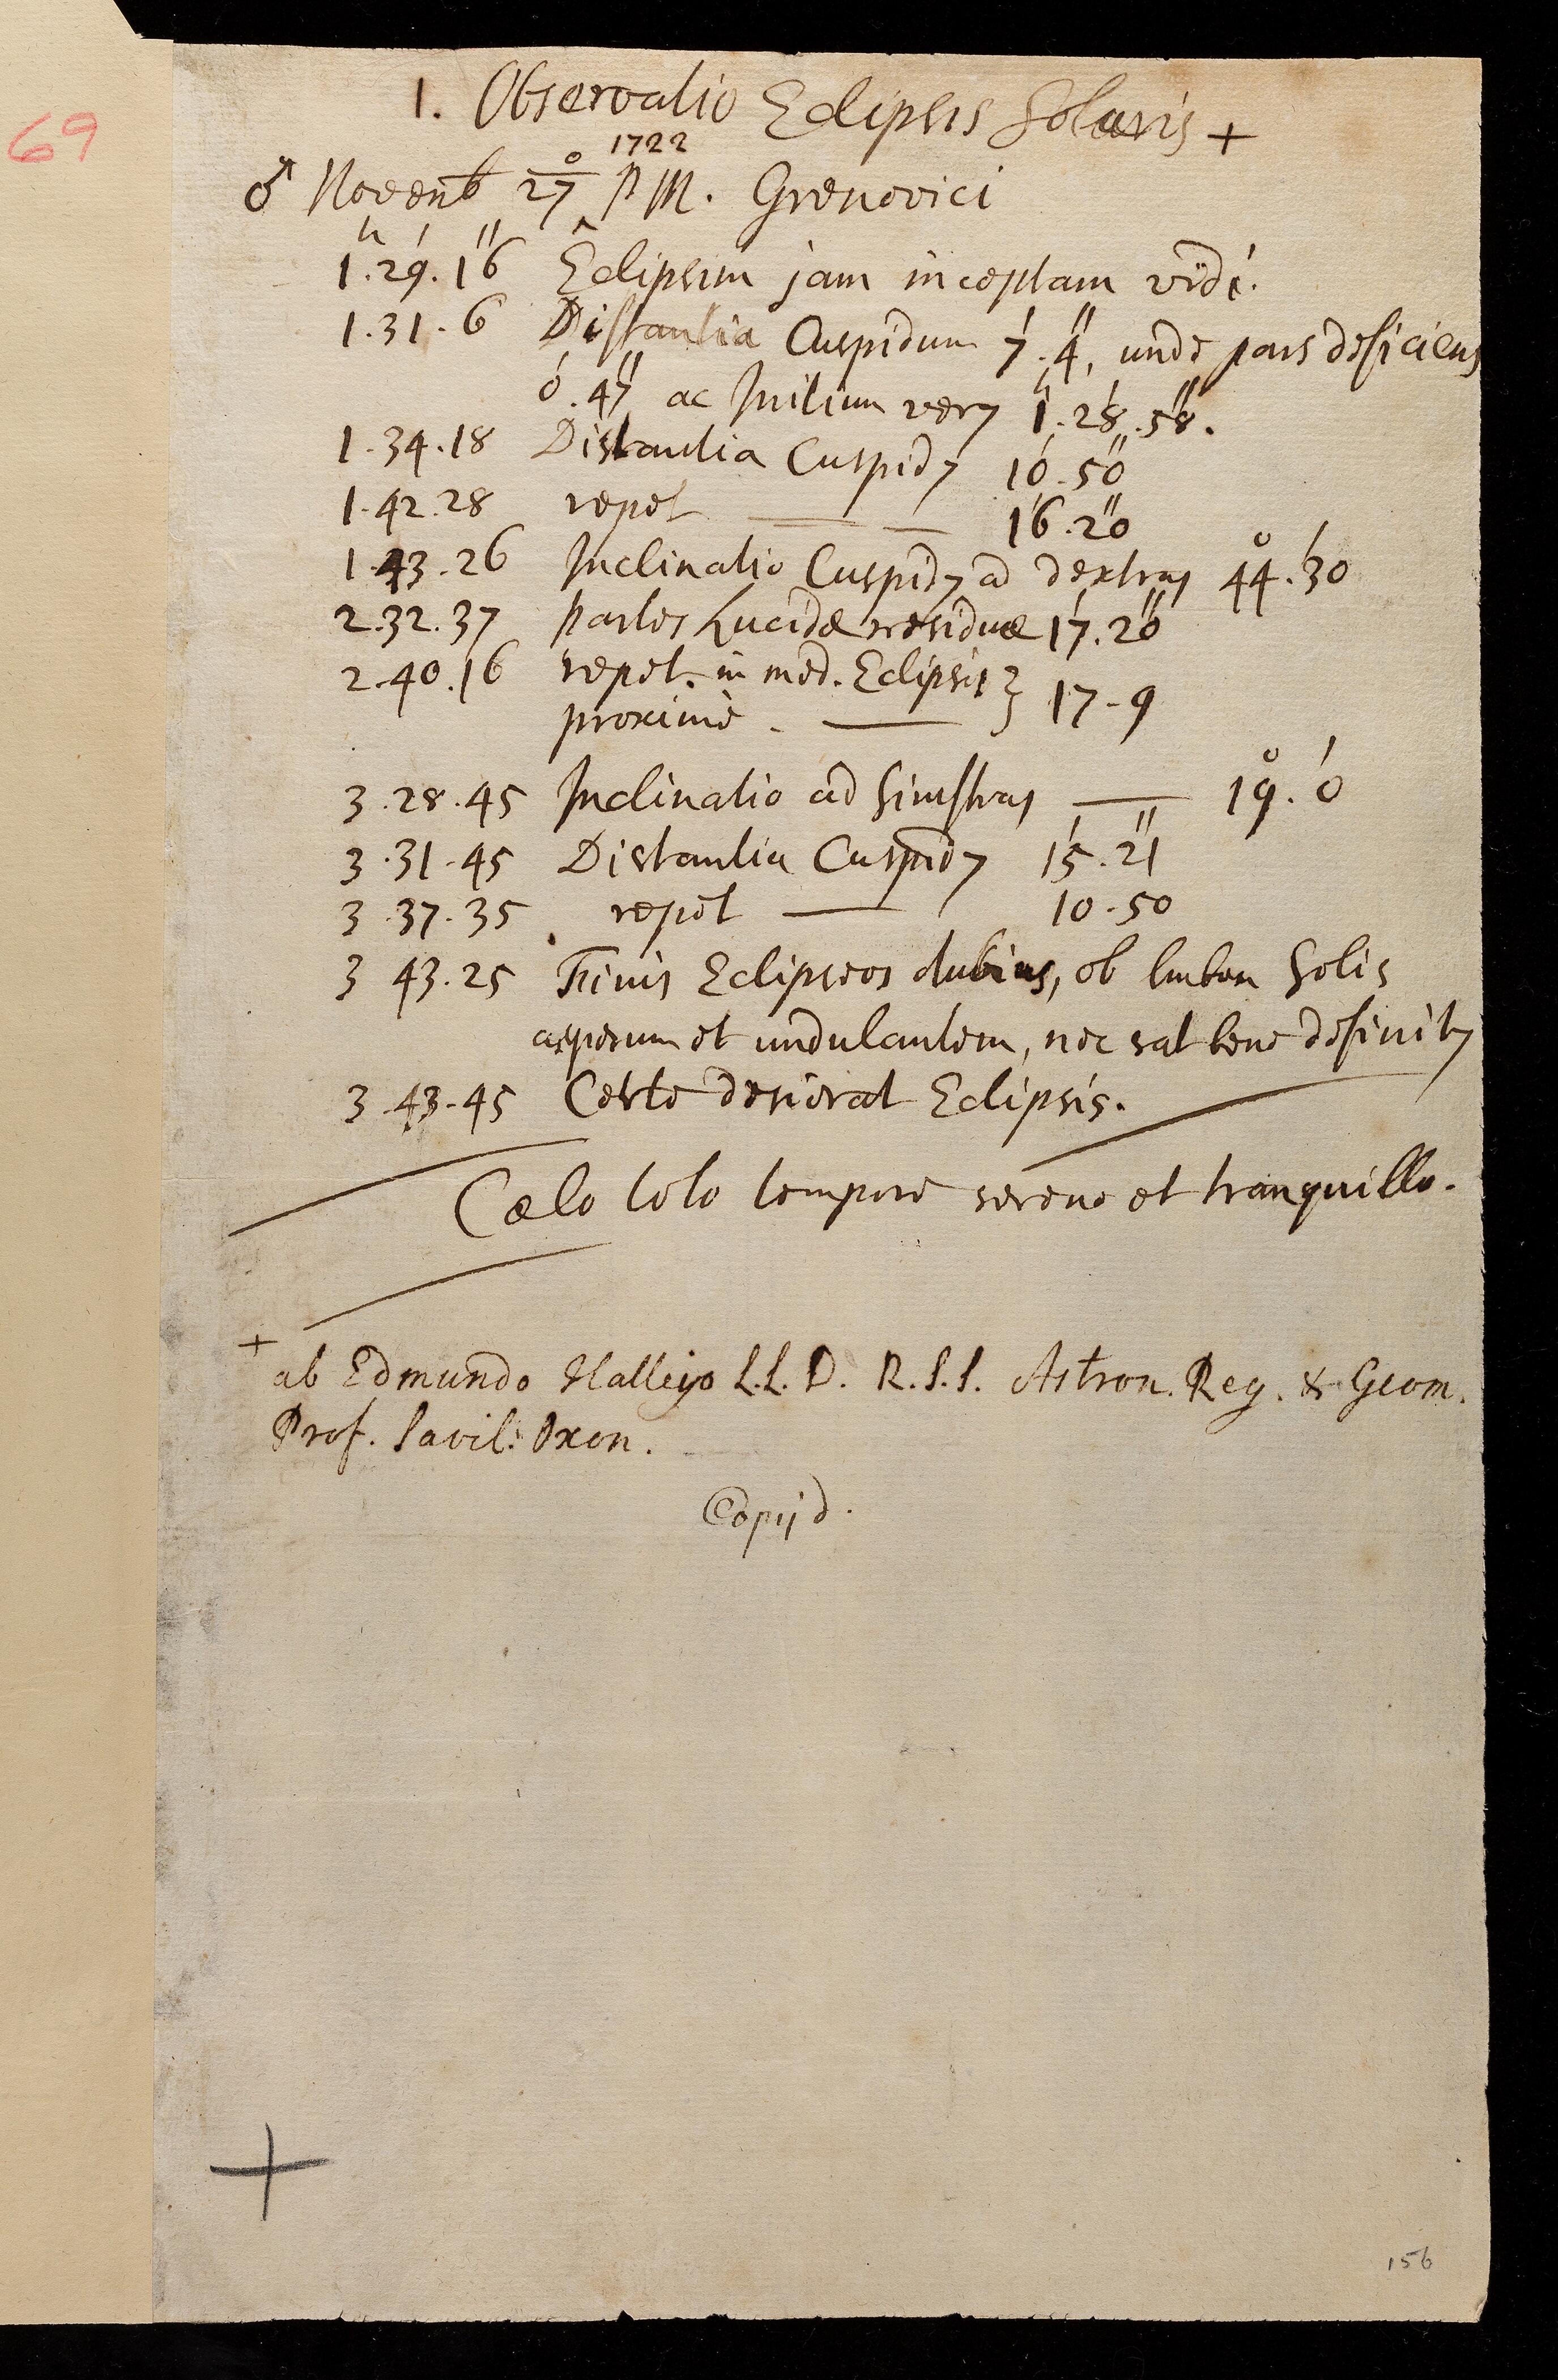 69
1. Observatio Eclipsis Solaris +
♂ Novemb 27° 1722 P M. Grenovici
1h.29'.16" Eclipsim jam inceptam vidi.
1.31.6 Distantia Cuspidum 7'.4", unde pars deficiens
0'.47" ac Initium veru 1h.28'.58".
1.34.18 Distantia Cuspidu 10'.50"
1.42.28 repet —— — 16'.20"
1.43.26 Inclinatio Cuspidu ad dextras 44°.30'
2.32.37 partes Lucidæ residuæ 17'.20"
2.40.16 repet. in med. Eclipsis } 17-9
proxime. ——
3.28.45 Inclinatio ad Sinistras —— 19°.0'
3.31.45 Distantia Cuspidu 15'.21"
3.37.35 repet —— 10.50
3 43.25 Finis Eclipseos dubius, ob limbum Solis
asperum et undulantem, nec sat bene definitu
3.43.45 Certe desierat Eclipsis.
Cælo toto tempore sereno et tranquillo.
+ ab Edmundo Halleyo L.L.D. R.S.S. Astron. Reg. & Geom.
Prof. Savil: Oxon.
Copyd.
+
156